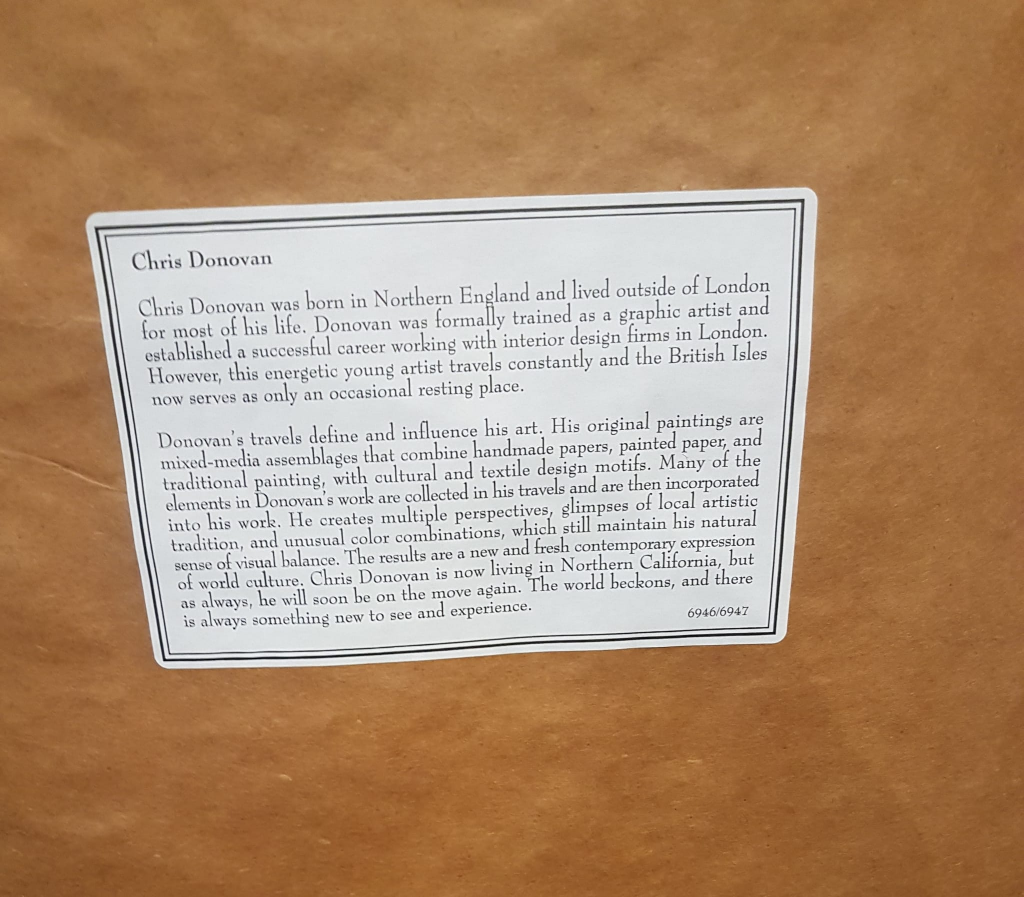 Chris Donovan
Chris Donovan was born in Northern England and lived outside of London
for most of his life. Donovan was formally trained as a graphic artist and
established a successful career working with interior design firms in London.
However, this energetic young artist travels constantly and the British Isles
now serves as only an occasional resting place.
Donovan's travels define and influence his art. His original paintings are
mixed-media assemblages that combine handmade papers, painted paper, and
traditional painting, with cultural and textile design motifs. Many of the
elements in Donovan's work are collected in his travels and are then incorporated
into his work. He creates multiple perspectives, glimpses of local artistic
tradition, and unusual color combinations, which still maintain his natural
sense of visual balance. The results are a new and fresh contemporary expression
of world culture. Chris Donovan is now living in Northern California, but
as always, he will soon be on the move again. The world beckons, and there
is always something new to see and experience.
6946/6947